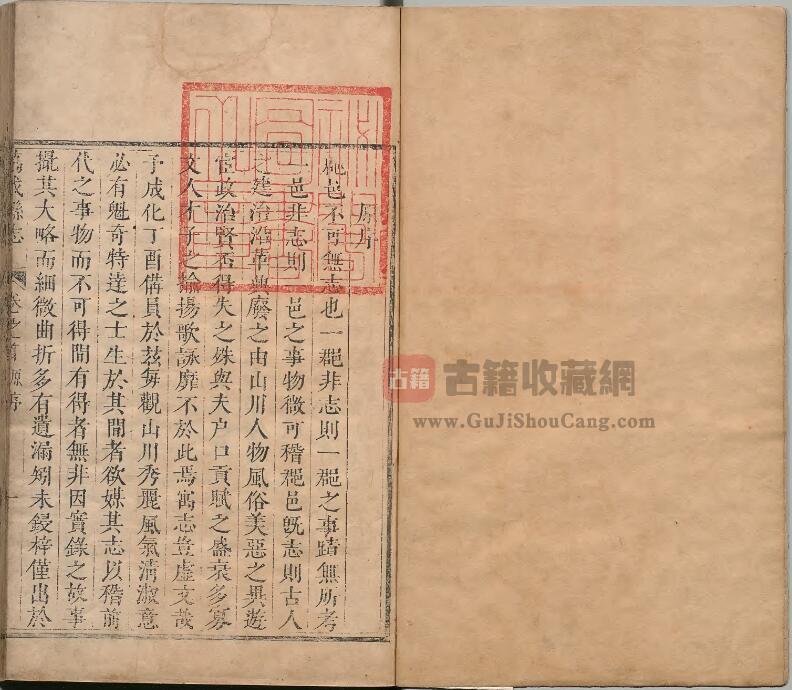 原序
郡邑不可無志也一郡非志則一郡之事蹟無所考
一邑非志則一邑之事物微可稽郡邑既志則古人
之建治沿革興廢之由山川人物風俗美惡之異遊
宦政治賢否得失之殊與夫户口貢賦之盛衰多寡
文人才子之揄揚歌詠靡不於此焉寓志豈虚文哉
予成化丁酉備員於茲每觀山川秀麗風氣清淑意
必有魁奇特達之士生於其間者欲媒其志以稽前
代之事物而不可得間有得者無非因實錄之故事
撮其大略而細微曲折多有遺漏矧未鋟梓僅出於
縣志 卷之首 原序 一
古籍 古籍收藏網
www.GuJiShouCang.com